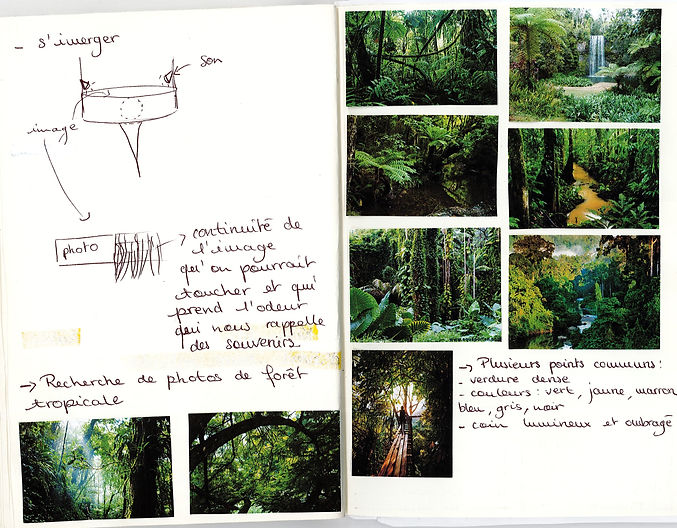 - s'imerger
son
image
photo
→ continuité de
l'image
qu'on pourrait
toucher et qui
prend l'odeur
qui nous rappelle
des souvenirs
→ Recherche de photos de forêt
tropicale
→ Plusieurs points communs :
- verdure dense
- couleurs : vert, jaune, marron
bleu, gris, noir
- coin lumineux et ombragé